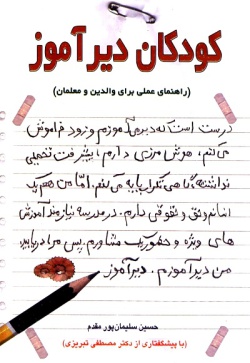 کودکان دیرآموز
(راهنمای عملی برای والدین و معلمان)
درست است که دیر می‌آموزم و زود فراموش
می‌کنم، هوش مرزی دارم، پیشرفت تحصیلی
نداشته، گاهی تکرار پایه می‌کنم. اما من هم یک
انسانم و حق و حقوقی دارم. در مدرسه نیازمند آموزش
های ویژه و حضور یک مشاورم. پس مرا دریابید
من دیرآموزم. دیرآموز
حسین سلیمان‌پور مقدم
(با پیشگفتاری از دکتر مصطفی تبریزی)